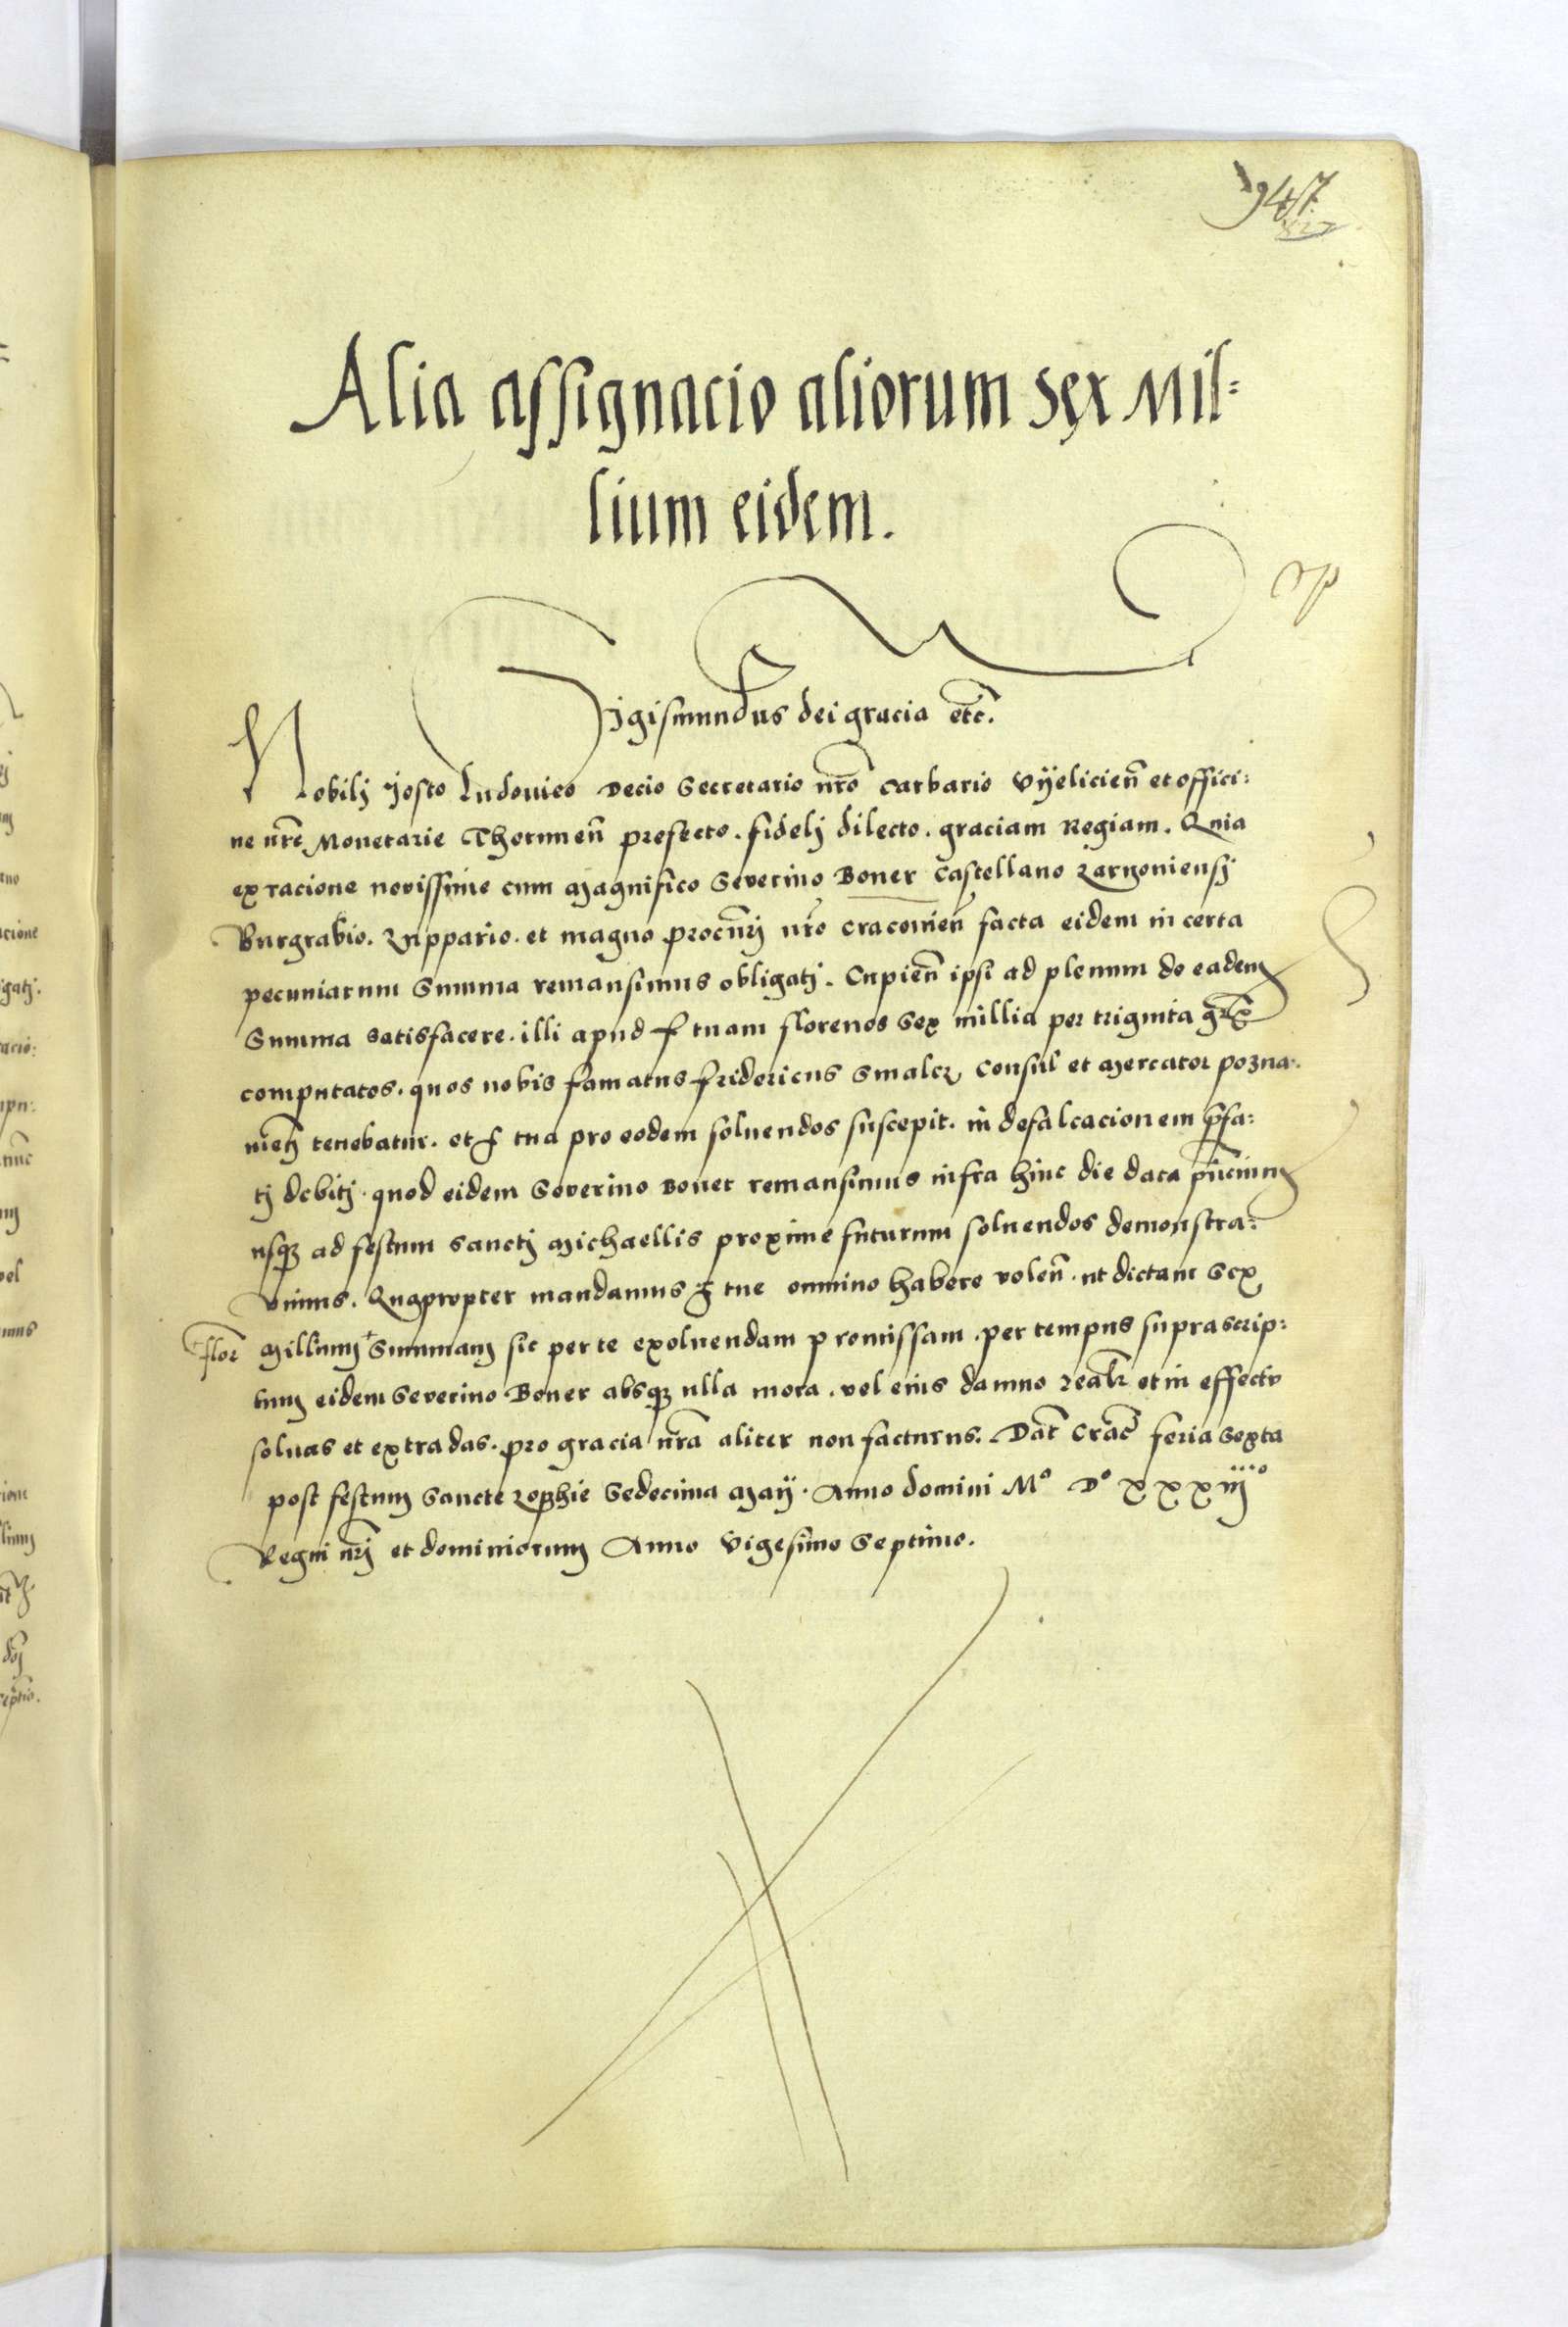 947
Alia assignacio aliorum sex Mil=
lium eidem.
Sigismundus dei gracia etc̃.
Nobilj Josto Ludouico Decio Secretario nr̃o carbario Vyelicien̄ et offici:
ne nr̃e Monetarie Thorunen̄ prefecto. fidelj dilecto. graciam Regiam. Quia
ex racione novissime cum Magnifico Severino Boner Castellano Zarnoniensj
Burgrabio. Zuppario. et magno procurj nr̃o Cracovien̄ facta eidem in certa
pecuniarum Summa remansimus obligatj. Cupien̄ ipsi ad plenum de eadem
Summa satisfacere. illi apud f tuam florenos Sex millia per triginta gr̃s
computatos. quos nobis famatus fridericus Smalcz Consul et Mercator pozna:
nien̄ tenebatur. et f tua pro eodem soluendos suscepit. in defalcacionem p̄fa:
tj debitj. quod eidem Severino Boner remansimus infra hinc die data p̄ñcium
usq₃ ad festum Sanctj Michaellis proxime futurum soluendos demonstra:
vimus. Quapropter mandamus f tue omnino habere volen̄. ut dictam Sex
Millium + Summam sic per te exoluendam promissam. per tempus suprascrip:
flor̃
tum eidem Severino Boner absq₃ ulla mora. vel eius damno realr̃ et in effectu
soluas et extradas. pro gracia nr̃a aliter non facturus. Dat̃ Crac̃ feria Sexta
post festum Sancte Zophie Sedecima Maij. Anno domini Mº Dº xxxiijº
Regni nr̃j et dominiorum Anno Vigesimo Septimo.